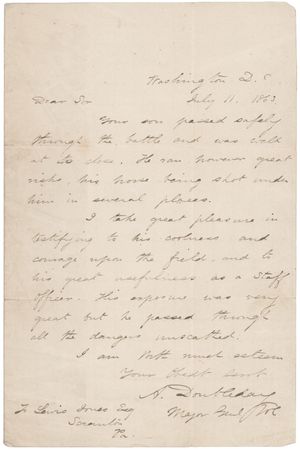 Washington D. C.
Dear Sir July 11. 1863.
Your son passed safely
through the battle and was well
at its close. He ran however great
risks, his horse being shot under
him in several places.
I take great pleasure in
testifying to his coolness and
courage upon the field, and to
his great usefulness as a Staff
officer. His exposure was very
great but he passed through
all the dangers unscathed.
I am with much esteem
Your Obedt servt
A. Doubleday
Major Genl Vol
To Lewis Jones Esq
Scranton
Pa.